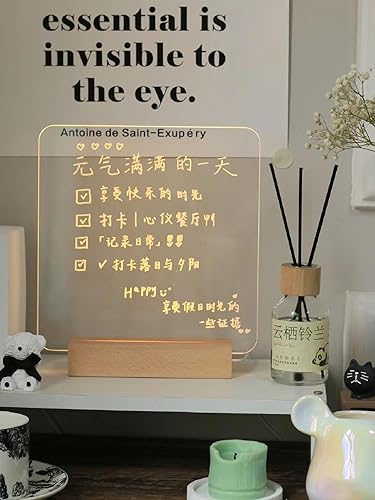 essential is
invisible to
the eye.
Antoine de Saint-Exupéry
元气满满的一天
享受快乐的时光
打卡|心仪餐厅
「记录日常」!!!
✓打卡落日与夕阳
HAPPY
享受假日时光的
一些证据
云栖铃兰